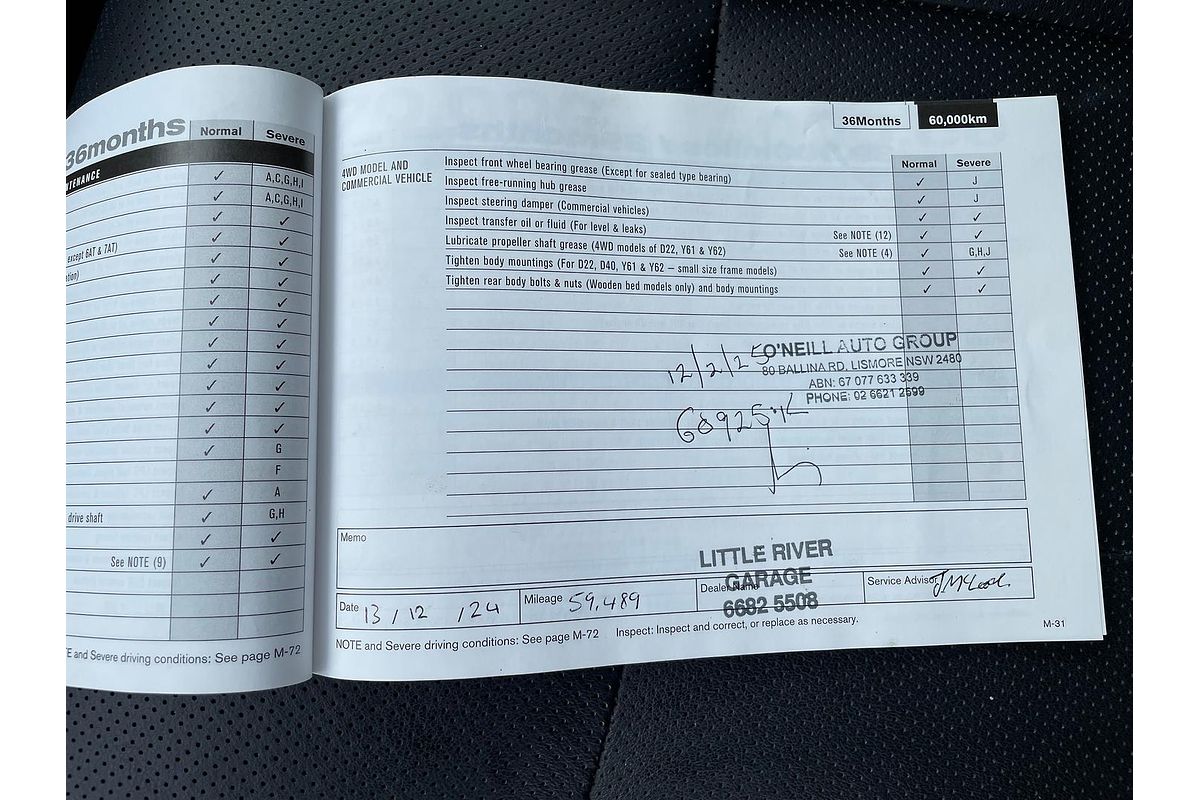 36months
Normal Severe
NTENANCE
✓ A,C,G,H,I
✓ A,C,G,H,I
✓ ✓
✓ ✓
except 6AT & 7AT) ✓ ✓
ation) ✓ ✓
✓ ✓
✓ ✓
✓ ✓
✓ ✓
✓ ✓
✓ ✓
✓ ✓
✓ G
F
✓ A
drive shaft ✓ G,H
✓ ✓
See NOTE (9) ✓ ✓
E and Severe driving conditions: See page M-72
36Months 60,000km
Normal Severe
4WD MODEL AND
COMMERCIAL VEHICLE
Inspect front wheel bearing grease (Except for sealed type bearing) ✓ J
Inspect free-running hub grease ✓ J
Inspect steering damper (Commercial vehicles) ✓ ✓
Inspect transfer oil or fluid (For level & leaks) See NOTE (12) ✓ ✓
Lubricate propeller shaft grease (4WD models of D22, Y61 & Y62) See NOTE (4) ✓ G,H,J
Tighten body mountings (For D22, D40, Y61 & Y62 – small size frame models) ✓ ✓
Tighten rear body bolts & nuts (Wooden bed models only) and body mountings ✓ ✓
12/2/25
O'NEILL AUTO GROUP
80 BALLINA RD, LISMORE NSW 2480
ABN: 67 077 633 339
PHONE: 02 6621 2599
68925
Memo
LITTLE RIVER
GARAGE
6682 5508
Date 13 / 12 / 24
Mileage 59,489
Dealer Name
Service Advisor J McLeod.
NOTE and Severe driving conditions: See page M-72 Inspect: Inspect and correct, or replace as necessary.
M-31